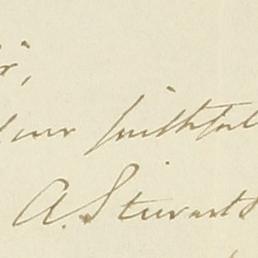 Your faithful
A. Stewart